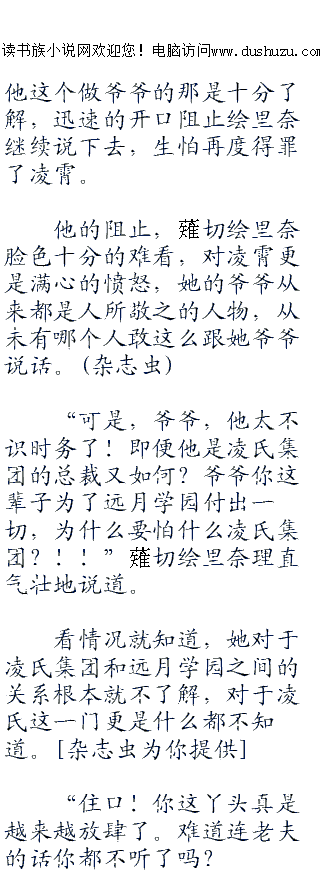 读书族小说网欢迎您！电脑访问www.dushuzu.com
他这个做爷爷的那是十分了
解，迅速的开口阻止绘里奈
继续说下去，生怕再度得罪
了凌霄。
他的阻止，薙切绘里奈
脸色十分的难看，对凌霄更
是满心的愤怒，她的爷爷从
来都是人所敬之的人物，从
未有哪个人敢这么跟她爷爷
说话。(杂志虫)
“可是，爷爷，他太不
识时务了！即便他是凌氏集
团的总裁又如何？爷爷你这
辈子为了远月学园付出一
切，为什么要怕什么凌氏集
团？！！”薙切绘里奈理直
气壮地说道。
看情况就知道，她对于
凌氏集团和远月学园之间的
关系根本就不了解，对于凌
氏这一门更是什么都不知
道。[杂志虫为你提供]
“住口！你这丫头真是
越来越放肆了。难道连老夫
的话你都不听了吗？